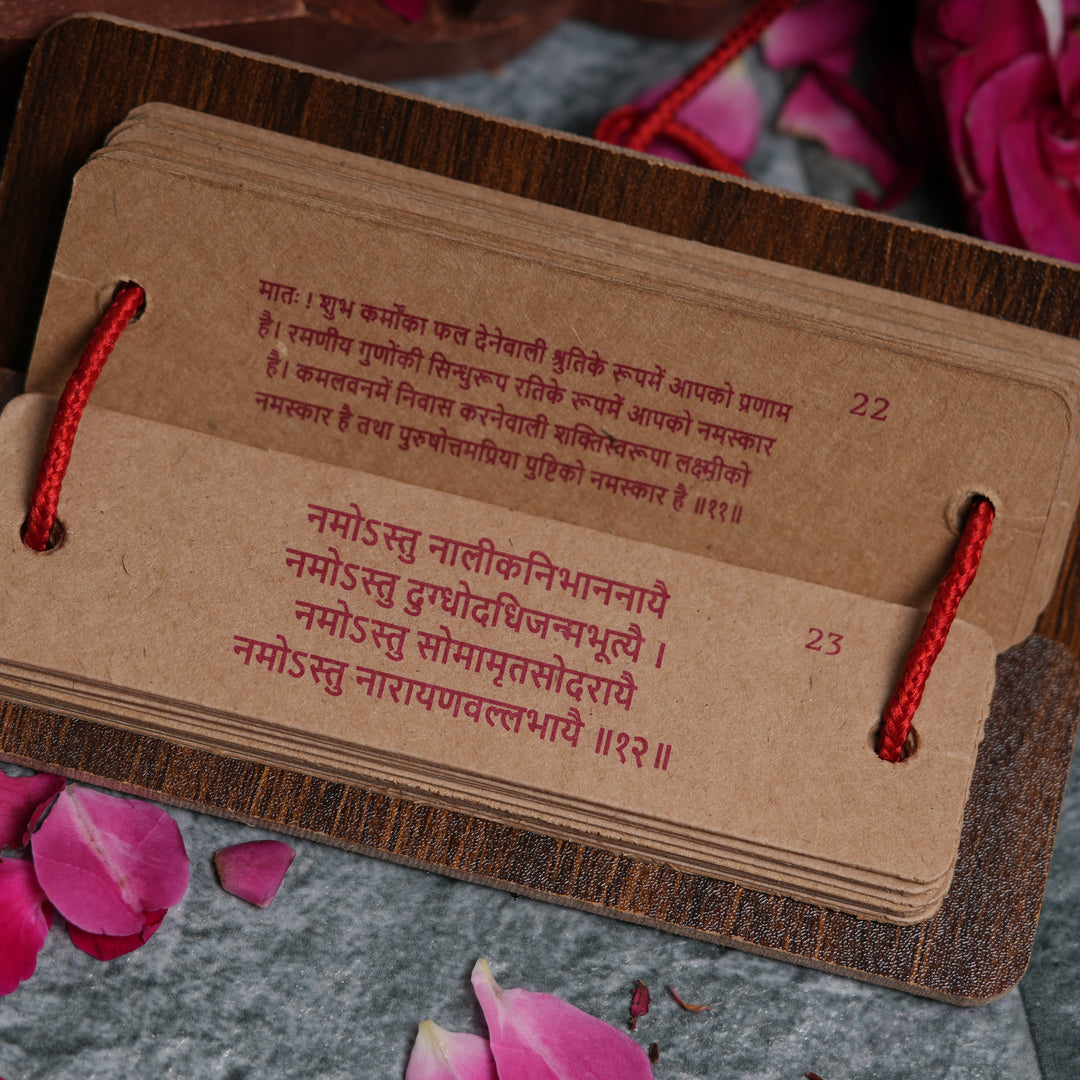 मातः ! शुभ कर्मोंका फल देनेवाली श्रुतिके रूपमें आपको प्रणाम
है। रमणीय गुणोंकी सिन्धुरूप रतिके रूपमें आपको नमस्कार
है। कमलवनमें निवास करनेवाली शक्तिस्वरूपा लक्ष्मीको
नमस्कार है तथा पुरुषोत्तमप्रिया पुष्टिको नमस्कार है ॥११॥
22
नमोऽस्तु नालीकनिभाननायै
नमोऽस्तु दुग्धोदधिजन्मभूत्यै ।
नमोऽस्तु सोमामृतसोदरायै
नमोऽस्तु नारायणवल्लभायै ॥१२॥
23